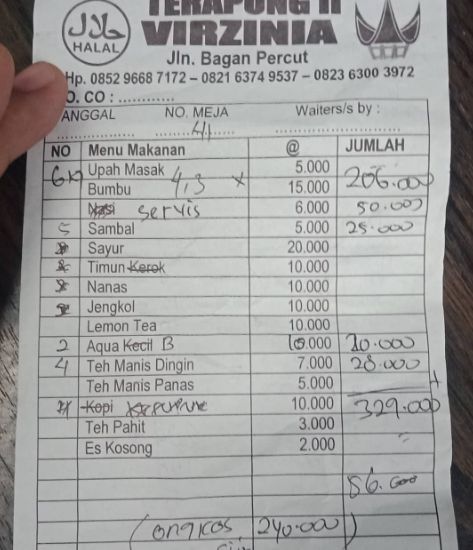 حلال
HALAL
TERAPUNG II
VIRZINIA
Jln. Bagan Percut
Hp. 0852 9668 7172 – 0821 6374 9537 – 0823 6300 3972
O. CO : ............
ANGGAL NO. MEJA Waiters/s by :
41
NO Menu Makanan @ JUMLAH
Upah Masak 5.000
Bumbu 4,3 x 15.000 206.000
Nasi servis 6.000 50.000
5 Sambal 5.000 25.000
Sayur 20.000
Timun Kerok 10.000
Nanas 10.000
Jengkol 10.000
Lemon Tea 10.000
2 Aqua Kecil B 10.000 20.000
4 Teh Manis Dingin 7.000 28.000
Teh Manis Panas 5.000
Kopi 10.000 329.000
Teh Pahit 3.000
Es Kosong 2.000
86.000
(ongkos 240.000)